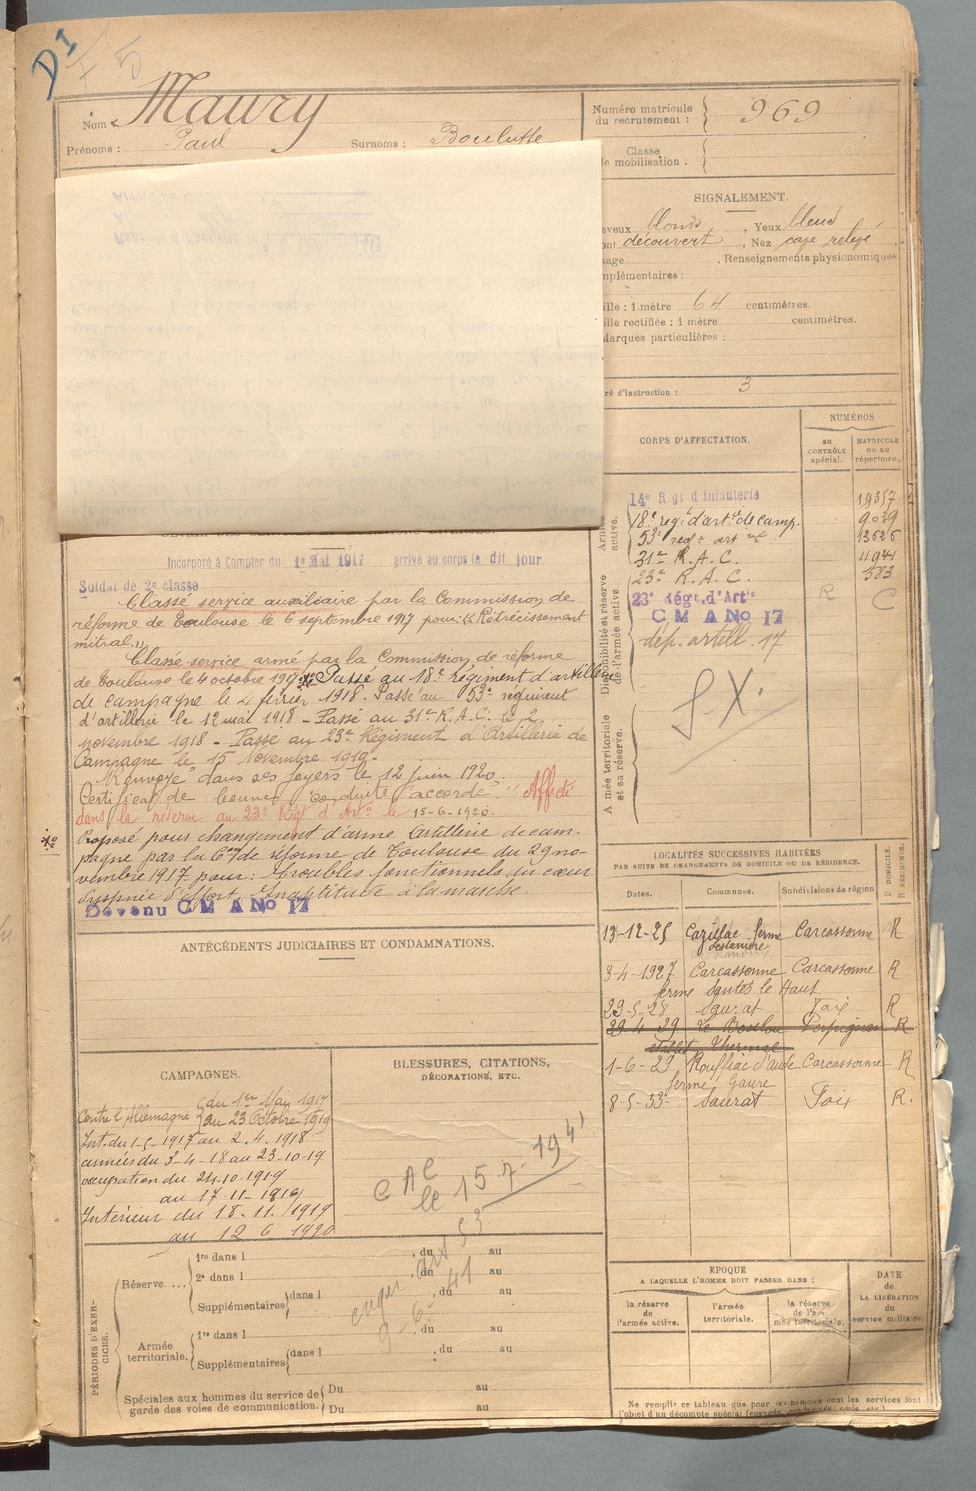 D1
F 5
Nom : Maury
Prénoms : Paul Surnoms : Boulutte
Numéro matricule
du recrutement : 969
Classe
de mobilisation :
SIGNALEMENT.
blonds , Yeux bleus
découvert , Nez cave relevé
, Renseignements physionomiques
: 1 mètre 64 centimètres.
rectifiée : 1 mètre centimètres.
Marques particulières :
d'instruction : 3
CORPS D'AFFECTATION.
NUMÉROS
AU
CONTRÔLE
spécial.
MATRICULE
OU AU
répertoire.
14e Rgt d'Infanterie 19357
18e regt d'artie de camp. 9039
53e regt art 13526
31e R.A.C. 11941
23e R.A.C. 383
23e Régt. d'Artie R C
C M A No 17
dép. artill. 17
Disponibilité et réserve
de l'armée active.
Armée territoriale
et sa réserve.
Incorporé à Compter du 1e Mai 1917 arrivé au corps le dit jour
Soldat de 2e classe
Classé service auxiliaire par la Commission de
réforme de Toulouse le 6 septembre 1917 pour: « Rétrécissement
mitral »
Classé service armé par la Commission de réforme
de Toulouse le 4 octobre 1917. Passé au 18e régiment d'artillerie
de campagne le 2 février 1918. Passé au 53e régiment
d'artillerie le 12 mai 1918 - Passé au 31e R.A.C. le 2
novembre 1918 - Passé au 23e Régiment d'Artillerie de
Campagne le 15 Novembre 1919.
Renvoyé dans ses foyers le 12 juin 1920.
Certificat de bonne conduite "accordé" Affecté
dans la réserve au 23e Régt d'Artie le 15-6-1920.
Proposé pour changement d'arme (artillerie de cam-
pagne par la Con de réforme de Toulouse du 29 no-
vembre 1917 pour: Troubles fonctionnels du cœur
dyspnée d'effort - Inaptitude à la marche.
Devenu C M A No 17
ANTÉCÉDENTS JUDICIAIRES ET CONDAMNATIONS.
LOCALITÉS SUCCESSIVES HABITÉES
PAR SUITE DE CHANGEMENTS DE DOMICILE OU DE RÉSIDENCE.
D. DOMICILE.
R. RÉSIDENCE.
Dates. Communes. Subdivisions de région
13-12-25 Cazilhac ferme Carcassonne R
3-4-1927 Carcassonne Carcassonne R
ferme Sautès le Haut
29-5-28 Saurat Foix R
29 4 29 Le Boulou Perpignan R
établt Thermal
1-6-29 Rouffiac d'aude Carcassonne R
ferme Gaure
8-5-33 Saurat Foix R.
CAMPAGNES.
Contre l'Allemagne du 1er Mai 1917
au 23 Octobre 1919
Int. du 1-5-1917 au 2.4.1918
armées du 3-4-18 au 23-10-19
occupation du 24-10-1919
au 17-11-1919
Intérieur du 18.11.1919
au 12 6 1920
BLESSURES, CITATIONS,
DÉCORATIONS, ETC.
C A C
le 15-7-1941
art 53
9-6-41
PÉRIODES D'EXER-
CICE.
Réserve.... 1re dans l , du au
2e dans l , du au
Supplémentaires dans l , du au
Armée
territoriale. 1re dans l , du au
Supplémentaires dans l , du au
Spéciales aux hommes du service de
garde des voies de communication. Du au
Du au
EPOQUE
A LAQUELLE L'HOMME DOIT PASSER DANS :
la réserve
de l'armée active.
l'armée
territoriale.
la réserve
de l'ar-
mée territoriale.
DATE
de
LA LIBÉRATION
du
service militaire.
Ne remplir ce tableau que pour les hommes dont les services font
l'objet d'un décompte spécial (engagés, condamnés, omis, etc.)